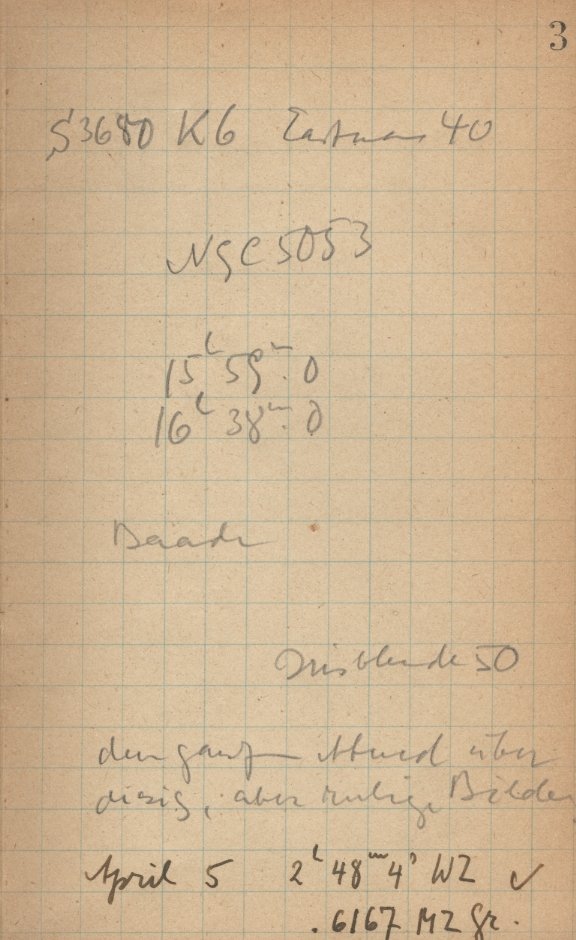 3
S3680 K6 Eastman 40
NGC 5053
15h 59m.0
16h 38m.0
Baade
Irisblende 50
den ganzen Abend über
diesig, aber ruhige Bilder
April 5 2h 48m 4s WZ ✓
.6167 MZ Gr.